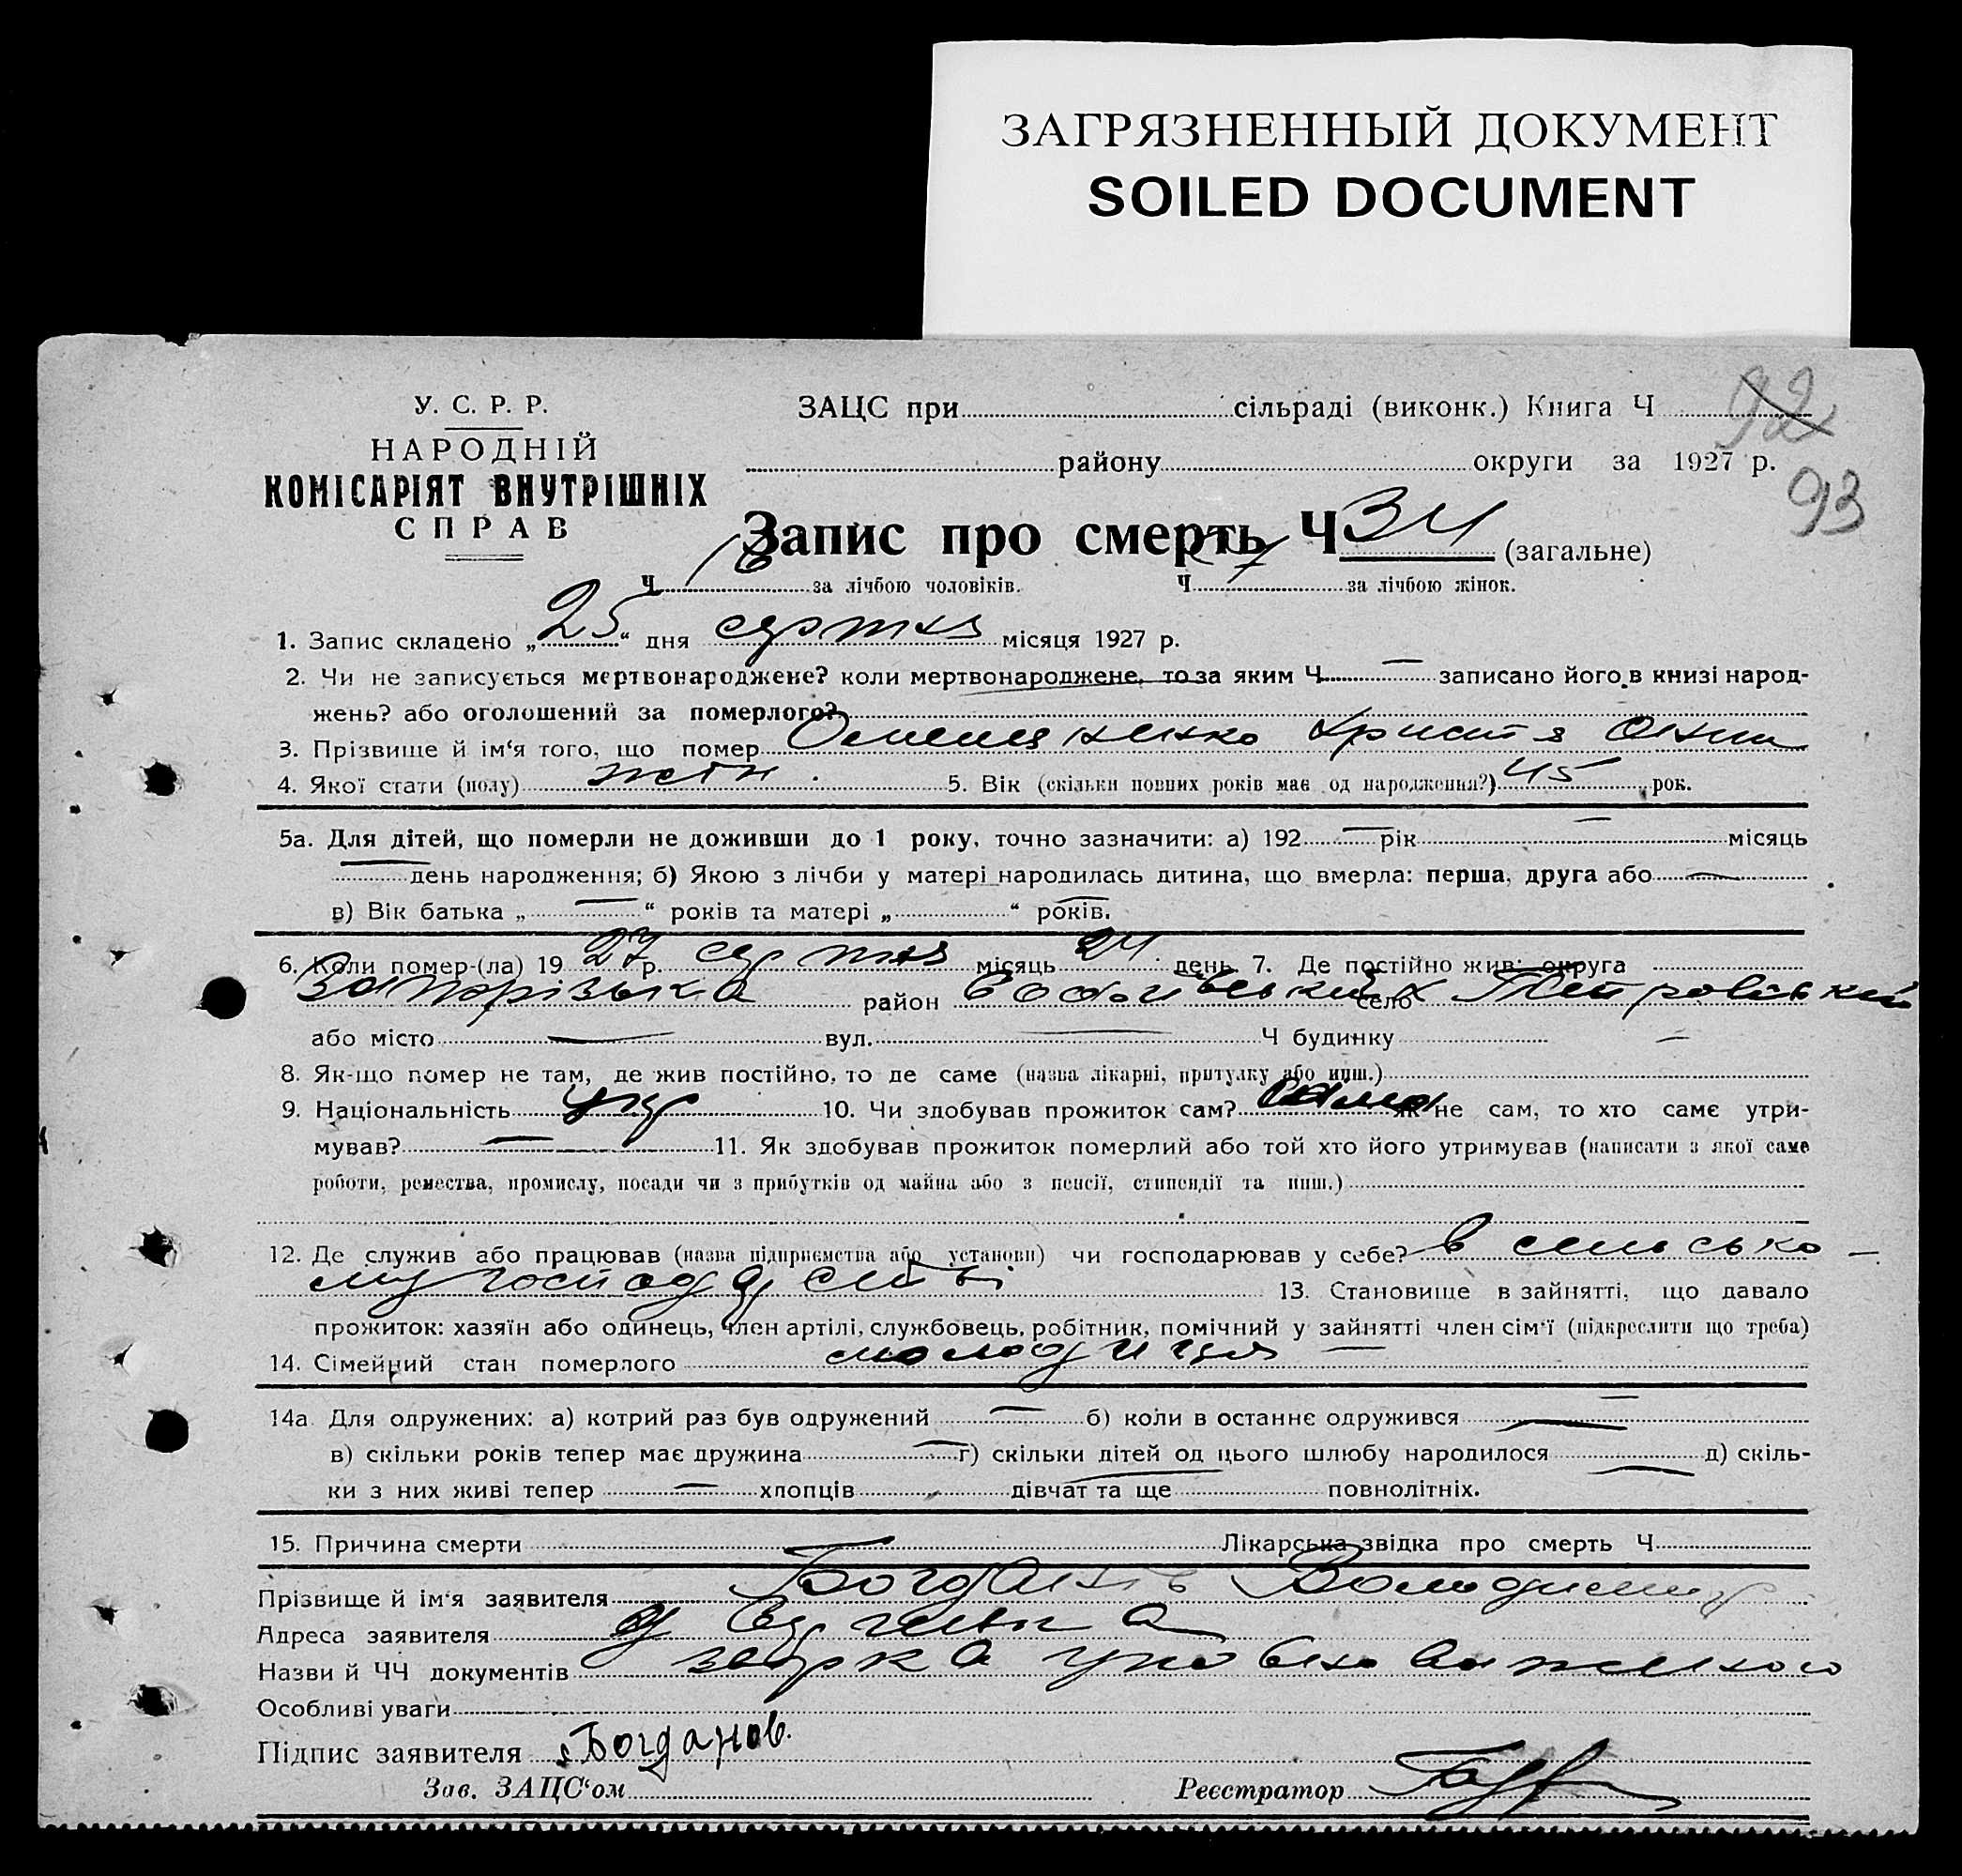 ЗАГРЯЗНЕННЫЙ ДОКУМЕНТ
SOILED DOCUMENT
У. С. Р. Р.
НАРОДНІЙ
КОМІСАРІЯТ ВНУТРІШНІХ
СПРАВ
ЗАЦС при сільраді (виконк.) Книга Ч 92
району округи за 1927 р.
93
Запис про смерть Ч 34 (загальне)
Ч 16 за лічбою чоловіків. Ч за лічбою жінок.
1. Запис складено „25“ дня серпня місяця 1927 р.
2. Чи не записується мертвонароджене? коли мертвонароджене, то за яким Ч — записано його в книзі народ-
жень? або оголошений за померлого?
3. Прізвище й ім‘я того, що помер Христя
4. Якої стати (полу) жін. 5. Вік (скільки повних років має од народження?) 45 рок.
5а. Для дітей, що померли не доживши до 1 року, точно зазначити: а) 192 — рік — місяць
— день народження; б) Якою з лічби у матері народилась дитина, що вмерла: перша, друга або —
в) Вік батька „ — “ років та матері „ “ років.
6. Коли помер-(ла) 1927 р. серпня місяць 24 день 7. Де постійно жив: округа
Запорізька район село х Петровський
або місто — вул. — Ч будинку —
8. Як-що помер не там, де жив постійно, то де саме (назва лікарні, притулку або инш.)
9. Національність укр 10. Чи здобував прожиток сам? сама як не сам, то хто саме утри-
мував? — 11. Як здобував прожиток померлий або той хто його утримував (написати з якої саме
роботи, ремества, промислу, посади чи з прибутків од майна або з пенсії, стипендії та инш.)
12. Де служив або працював (назва підприємства або установи) чи господарював у себе? в сельсько-
му господарстві 13. Становище в зайнятті, що давало
прожиток: хазяїн або одинець, член артілі, службовець, робітник, помічний у зайнятті член сім‘ї (підкреслити що треба)
14. Сімейний стан померлого молодиця
14а Для одружених: а) котрий раз був одружений — б) коли в останнє одружився —
в) скільки років тепер має дружина — г) скільки дітей од цього шлюбу народилося — д) скіль-
ки з них живі тепер — хлопців — дівчат та ще повнолітніх.
15. Причина смерти Лікарська звідка про смерть Ч
Прізвище й ім‘я заявителя Богданів Володимир
Адреса заявителя
Назви й ЧЧ документів
Особливі уваги
Підпис заявителя Богданов.
Зав. ЗАЦС‘ом Реєстратор